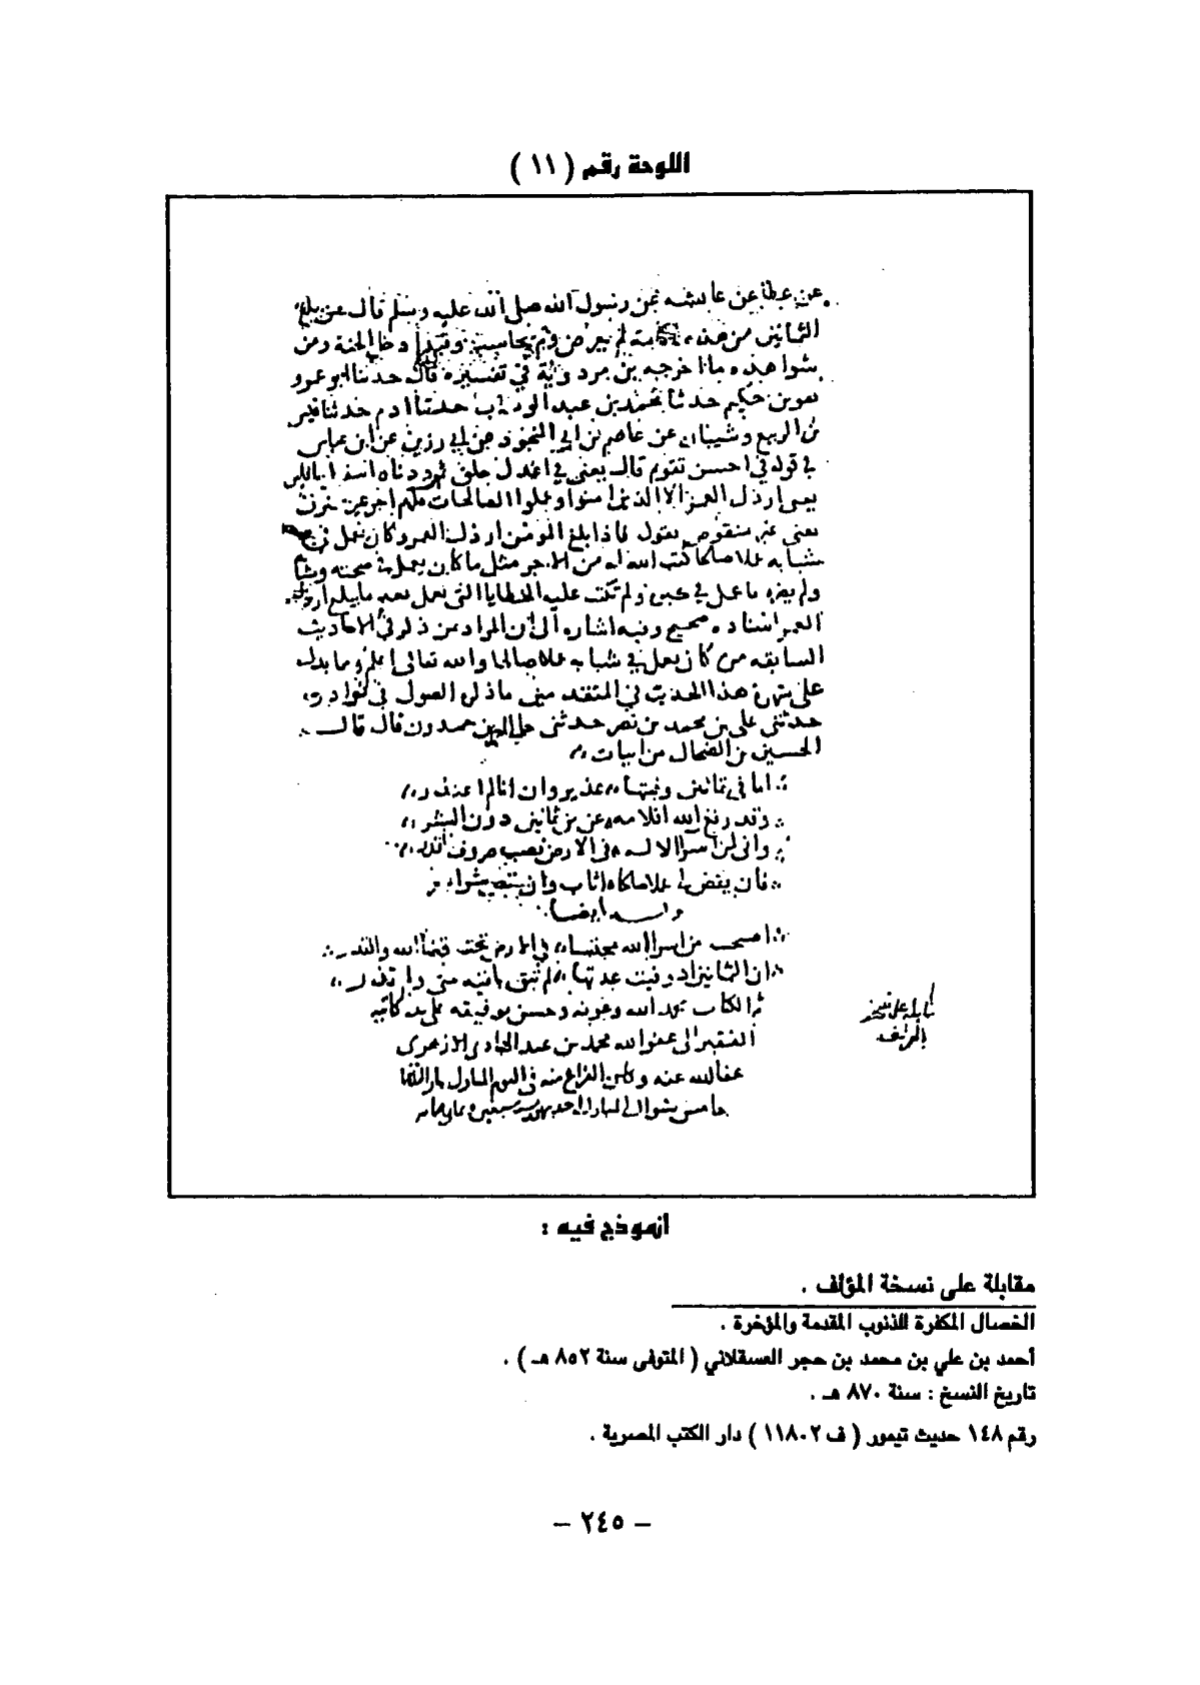 اللوحة رقم ( ١١ )
عن عطا عن عايشه عن رسول الله صلى الله عليه وسلم قال من بلغ
الثمانين من هذه لم يعرض ولم يحاسب وقيل ادخل الجنة ومن
شواهده ما اخرجه بن مردوية في تفسيره قال حدثنا ابو عمرو
بن حكيم حدثنا محمد بن عبد الوهاب حدثنا ادم حدثنا قيس
بن الربيع وشيبان عن عاصم بن ابي النجود عن ابي رزين عن ابن عباس
في قوله في احسن تقويم قال يعني في اعدل خلق ثم رددناه اسفل سافلين
يعني ارذل العمر الا الذين امنوا وعملوا الصالحات فلهم اجر غير ممنون
يعني غير منقوص يقول فاذا بلغ المومن ارذل العمر وكان يعمل في
شبابه عملا صالحا كتب الله له من الاجر مثل ما كان يعمل في صحته وشبابه
ولم يضره ما عمل في كبره ولم تكتب عليه الخطايا التي يعمل بعد ما يبلغ ارذل
العمر اسناده صحيح وفيه اشاره الى ان المراد من ذكر في الاحاديث
السابقه من كان يعمل في شبابه عملا صالحا والله تعالى اعلم ومما يدل
على شهرة هذا الحديث في المتقدمين ما ذكره الصولي في نوادره
حدثني علي بن محمد بن نصر حدثني بن حمدون قال قال
الحسين بن الضحاك من ابيات
اما في ثمانين وفيتها عذير وان انا لم اعتذر
وقد رفع الله اقلامه عن بن ثمانين دون البشر
واني لمن اسرا الاله في الارض نصب صروف القدر
فان يقض لي عملا صالحا اثاب وان يقض شرا غفر
وله ايضا
اصبحت من اسرا الله محتبسا في الارض تحت قضا الله والقدر
ان الثمانين اذ وفيت عدتها لم تبق باقيه مني ولم تذر
تم الكتاب بحمد الله وعونه وحسن توفيقه على يد كاتبه
الفقير الى عفو الله محمد بن عبد الهادي الازهري
عفا الله عنه وكان الفراغ منه في اليوم المبارك
خامس شوال المبارك سبعين وثمان مايه
قابله على نسخة
المؤلف
انموذج فيه :
مقابلة على نسخة المؤلف .
الخصال المكفرة للذنوب المقدمة والمؤخرة .
أحمد بن علي بن محمد بن حجر العسقلاني ( المتوفى سنة ٨٥٢ هـ ) .
تاريخ النسخ : سنة ٨٧٠ هـ .
رقم ١٤٨ حديث تيمور ( ف ١١٨٠٢ ) دار الكتب المصرية .
– ٢٤٥ –